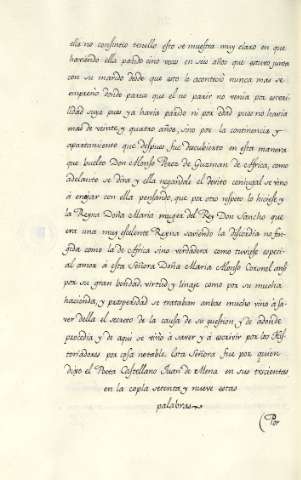 ella no consintio tenello esto se muestra muy claro en que
haviendo ella parido sino veces en seis años que estuvo junta
con su marido desde que esto le acontecio nunca mas se
empreño donde parece que el no parir no venia por esteri-
lidad suya pues ya havia parido ni por edad pues no havia
mas de veinte, y quatro años, sino por la continencia y
apartamiento que despues fue descubierto en esta manera
que buelto Don Alonso Perez de Guzman de Africa, como
adelante se dira y ella negandole el devito conjugal se vino
à enojar con ella pensando, que por otro respeto lo hiciese, y
la Reyna Doña Maria muger del Rey Don Sancho que
era una muy excelente Reyna saviendo la discordia no fin-
gida como la de Africa sino verdadera como tuviese especi-
al amor à esta Señora Doña Maria Alonso Coronel assi
por su gran bondad, virtud y linaje como por su mucha
hacienda, y prosperidad se trataban ambas mucho vino à sa-
ver della el secreto de la causa de su question y de adonde
procedia y de aqui se vino à saver y à escrivir por los His-
toriadores por cosa notable. Esta Señora fue por quien
dijo el Poeta Castellano Juan de Mena en sus trecientas
en la copla setenta y nueve estas
palabras
Por